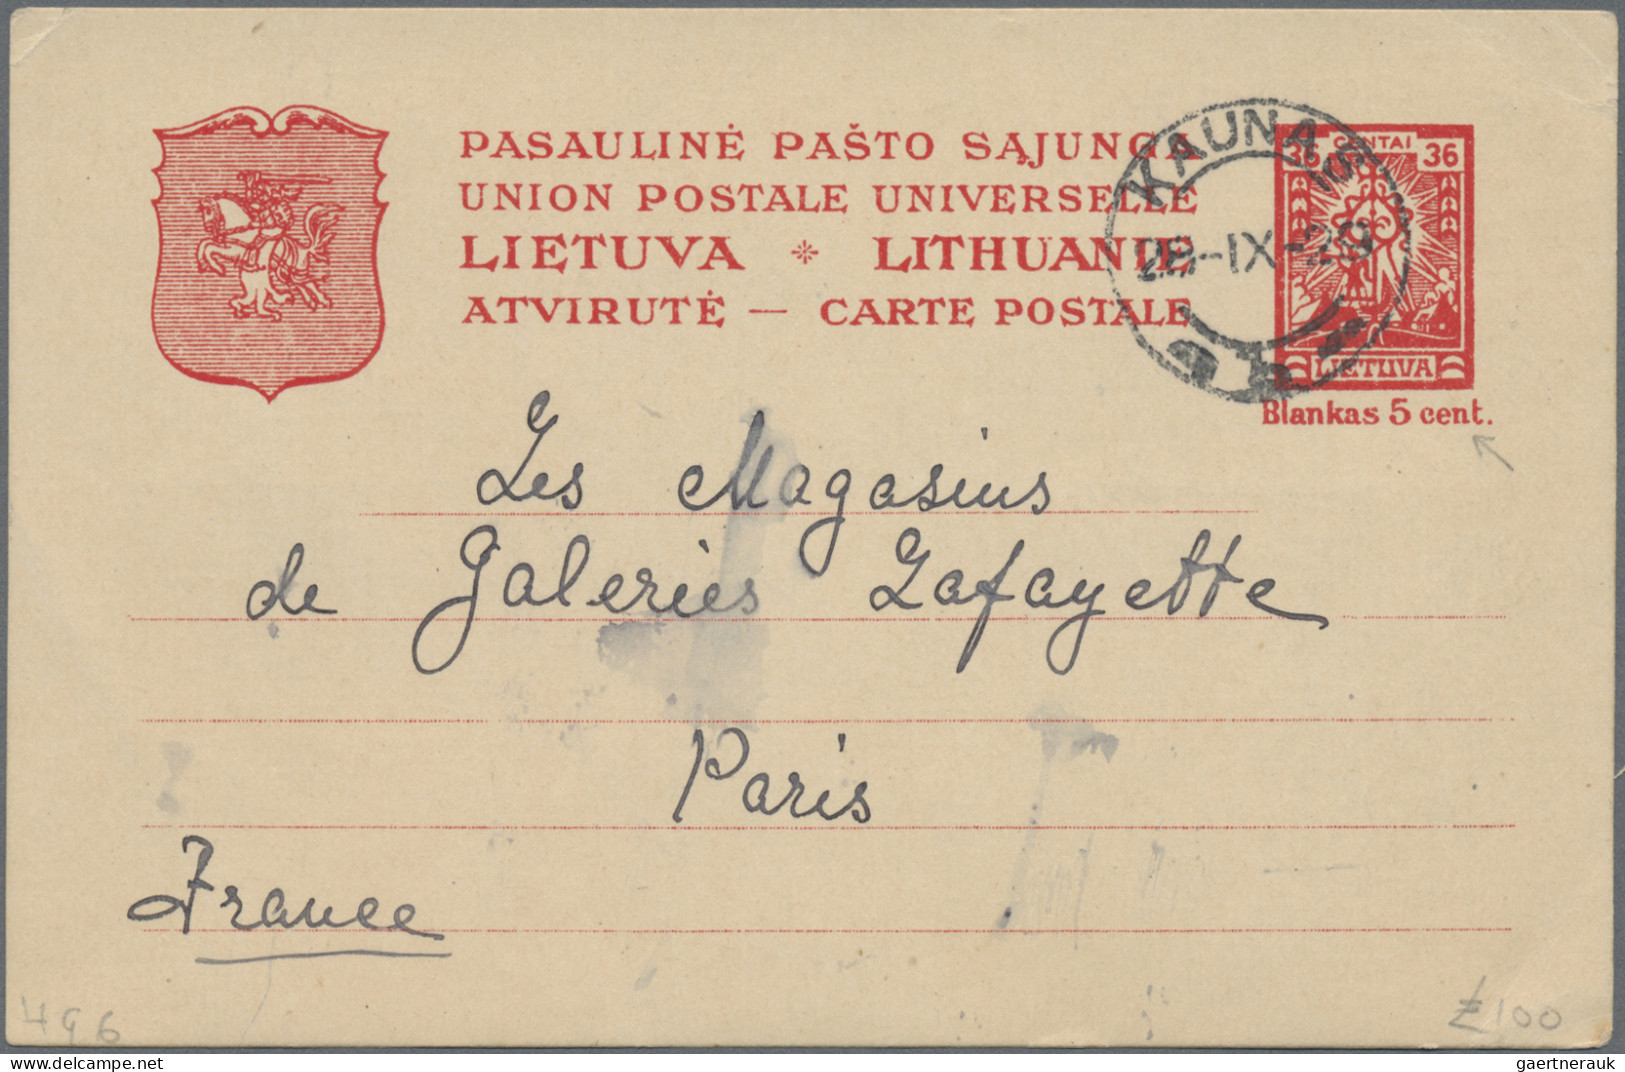 PASAULINĖ PAŠTO SĄJUNGA
UNION POSTALE UNIVERSELLE
LIETUVA * LITHUANIE
ATVIRUTĖ — CARTE POSTALE
KAUNAS
28-IX-29
36 CENTAI 36
LIETUVA
Blankas 5 cent.
Les Magasins
de Galeries Lafayette
Paris
France
496
£100
www.delcampe.net
gaertnerauk